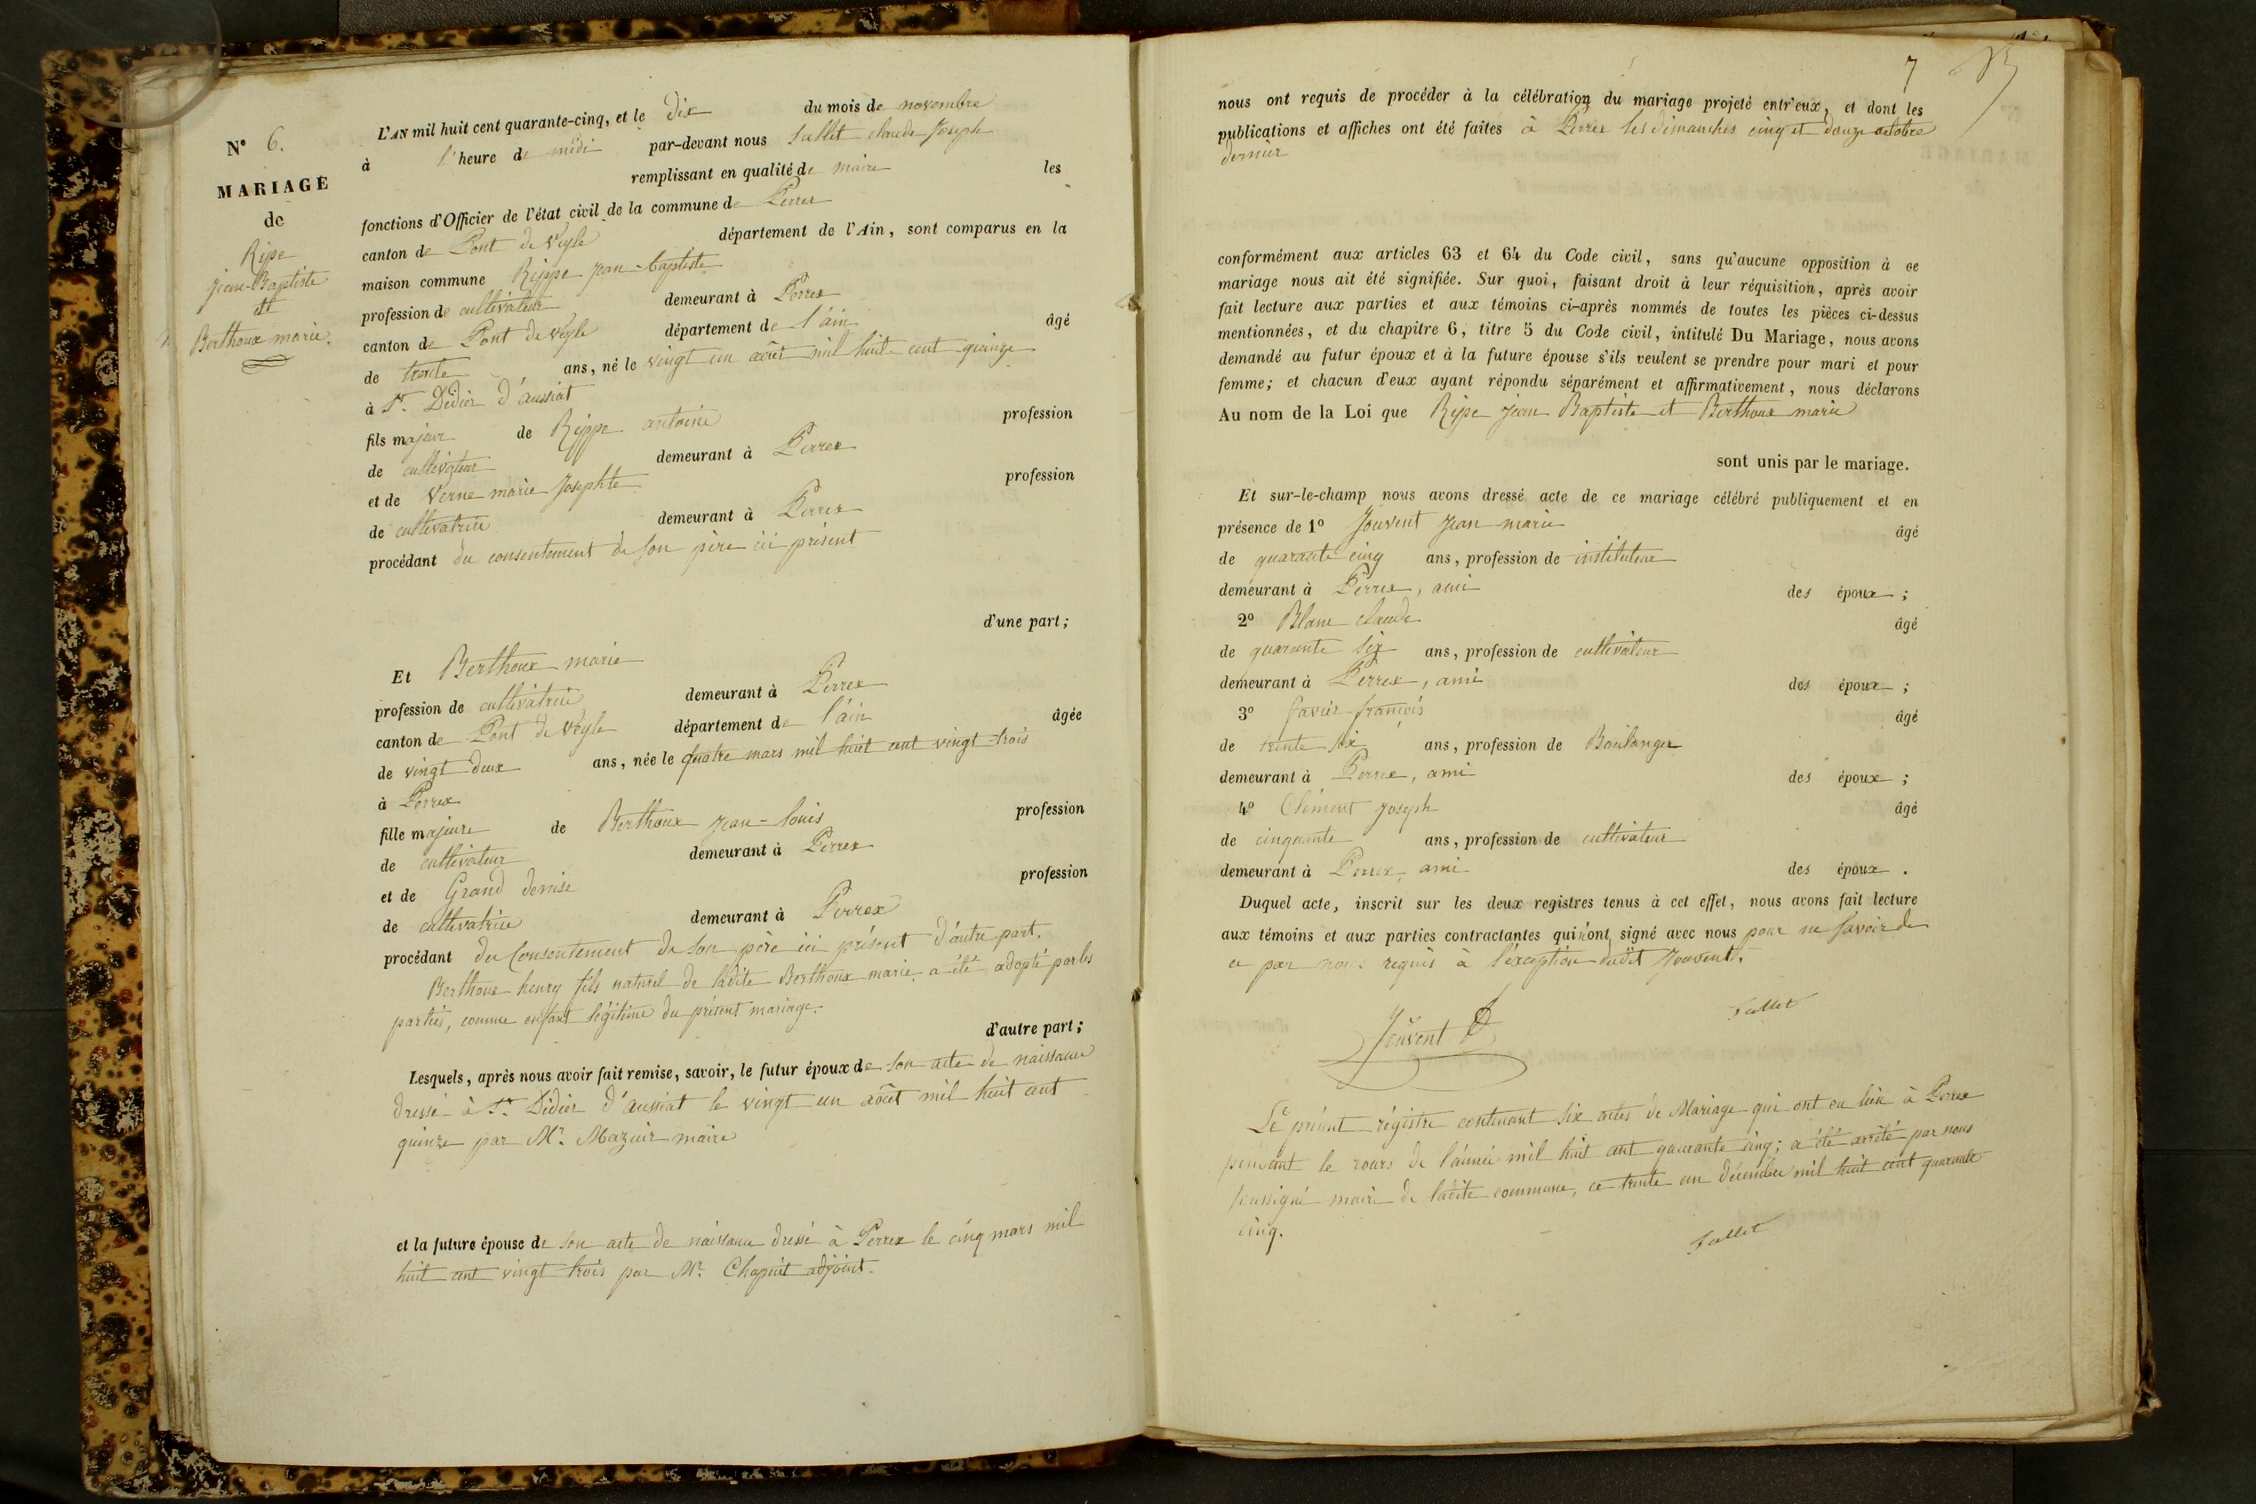 N° 6.
MARIAGE
de
Ripe
jean-Baptiste
et
Berthoux marie.
L'AN mil huit cent quarante-cinq, et le dix du mois de novembre
à l'heure de midi par-devant nous Sallet claude Joseph
remplissant en qualité de maire les
fonctions d'Officier de l'état civil de la commune de Perrex
canton de Pont de Veyle département de l'Ain, sont comparus en la
maison commune Rippe jean-baptiste
profession de cultivateur demeurant à Perrex
canton de Pont de Veyle département de l'ain âgé
de trente ans, né le vingt un août mil huit cent quinze
à St. Didier d'aussiat
fils majeur de Rippe antoine profession
de cultivateur demeurant à Perrex
et de Verne marie Josephte profession
de cultivatrice demeurant à Perrex
procédant du consentement de son père ici présent
d'une part;
Et Berthoux marie
profession de cultivatrice demeurant à Perrex
canton de Pont de Veyle département de l'ain âgée
de vingt deux ans, née le quatre mars mil huit cent vingt-trois
à Perrex
fille majeure de Berthoux jean-louis profession
de cultivateur demeurant à Perrex
et de Grand denise profession
de cultivatrice demeurant à Perrex
procédant du Consentement de son père ici présent d'autre part.
Berthoux henry fils naturel de ladite Berthoux marie a été adopté par les
parties, comme enfant légitime du présent mariage.
d'autre part;
Lesquels, après nous avoir fait remise, savoir, le futur époux de son acte de naissance
dressé à St. Didier d'aussiat le vingt un août mil huit cent
quinze par Mr. Mazuir maire
et la future épouse de son acte de naissance dressé à Perrex le cinq mars mil
huit cent vingt trois par Mr. Chapuit adjoint.
7
nous ont requis de procéder à la célébration du mariage projeté entr'eux, et dont les
publications et affiches ont été faites à Perrex les dimanches cinq et douze octobre
dernier
conformément aux articles 63 et 64 du Code civil, sans qu'aucune opposition à ce
mariage nous ait été signifiée. Sur quoi, faisant droit à leur réquisition, après avoir
fait lecture aux parties et aux témoins ci-après nommés de toutes les pièces ci-dessus
mentionnées, et du chapitre 6, titre 5 du Code civil, intitulé Du Mariage, nous avons
demandé au futur époux et à la future épouse s'ils veulent se prendre pour mari et pour
femme; et chacun d'eux ayant répondu séparément et affirmativement, nous déclarons
Au nom de la Loi que Ripe jean Baptiste et Berthoux marie
sont unis par le mariage.
Et sur-le-champ nous avons dressé acte de ce mariage célébré publiquement et en
présence de 1° Jouvent jean marie âgé
de quarante cinq ans, profession de instituteur
demeurant à Perrex, ami des époux;
2° Blanc claude âgé
de quarante six ans, profession de cultivateur
demeurant à Perrex, ami des époux;
3° favier françois âgé
de trente six ans, profession de Boulanger
demeurant à Perrex, ami des époux;
4° Clément joseph âgé
de cinquante ans, profession de cultivateur
demeurant à Perrex, ami des époux.
Duquel acte, inscrit sur les deux registres tenus à cet effet, nous avons fait lecture
aux témoins et aux parties contractantes qui n'ont signé avec nous pour ne savoir de
ce par nous requis à l'exception dudit Jouvent.
Jouvent
Sallet
Le présent régistre contenant six actes de Mariage qui ont eu lieu à Perrex
pendant le cours de l'année mil huit cent quarante cinq; a été arrêté par nous
soussigné maire de ladite commune, ce trente un décembre mil huit cent quarante
cinq.
Sallet